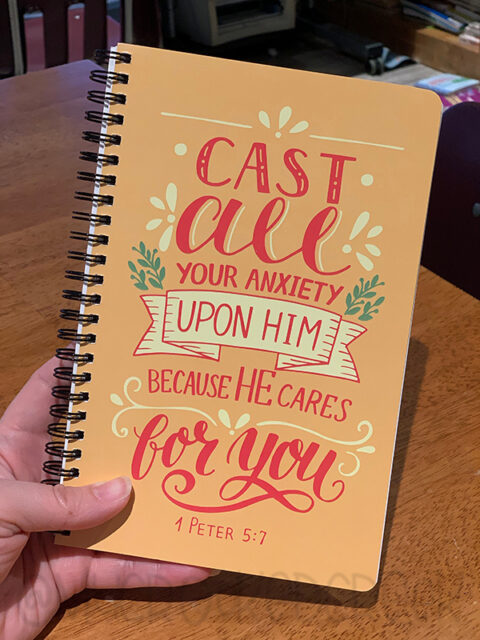 CAST
all
YOUR ANXIETY
UPON HIM
BECAUSE HE CARES
for you
1 PETER 5:7